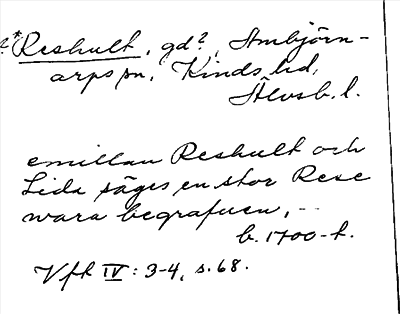 ?*Reshult, gd?, Ambjörn-
arps sn, Kinds hd,
Älvsb. l.
emillan Reshult och
Lida säges en stor Rese
wara begrafuen, --
b. 1700-t.
Vfh IV: 3-4, s. 68.